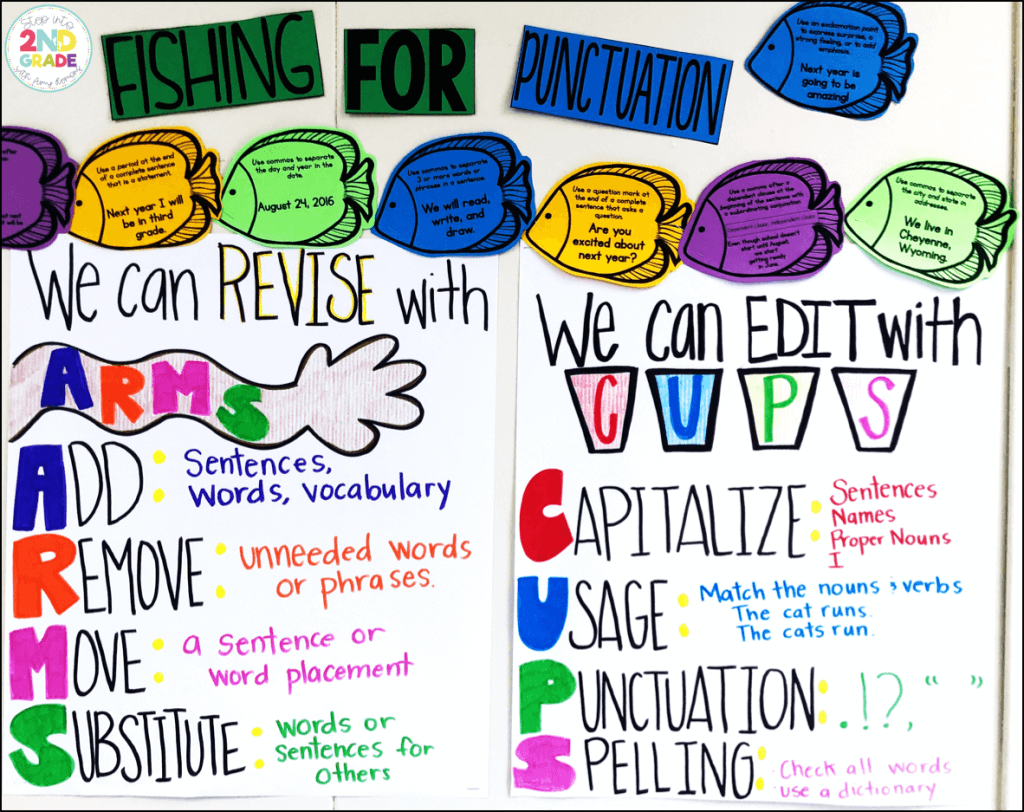 step into
2ND
GRADE
FISHING FOR PUNCTUATION
Use an exclamation point
to express surprise, a
strong feeling, or to add
emphasis.
Next year is
going to be
amazing!
Use a period at the end
of a complete sentence
that is a statement.
Next year I will
be in third
grade.
Use commas to separate
the day and year in the
date.
August 24, 2016
Use commas to separate
3 or more words or
phrases in a sentence.
We will read,
write, and
draw.
Use a question mark at
the end of a complete
sentence that asks a
question.
Are you
excited about
next year?
Use a comma after a
dependent clause at the
beginning of the sentence with
a subordinating conjunction.
Even though school doesn't
start until August,
we start
getting ready
in June.
Use commas to separate
the city and state in
addresses.
We live in
Cheyenne,
Wyoming.
We can REVISE with
ARMS
ADD: Sentences,
words, vocabulary
REMOVE: unneeded words
or phrases.
MOVE: a sentence or
word placement
SUBSTITUTE: words or
sentences for
others
We can EDIT with
CUPS
CAPITALIZE: Sentences
Names
Proper Nouns
I
USAGE: Match the nouns & verbs
The cat runs.
The cats run.
PUNCTUATION: . ! ? , “ ”
SPELLING: Check all words
use a dictionary